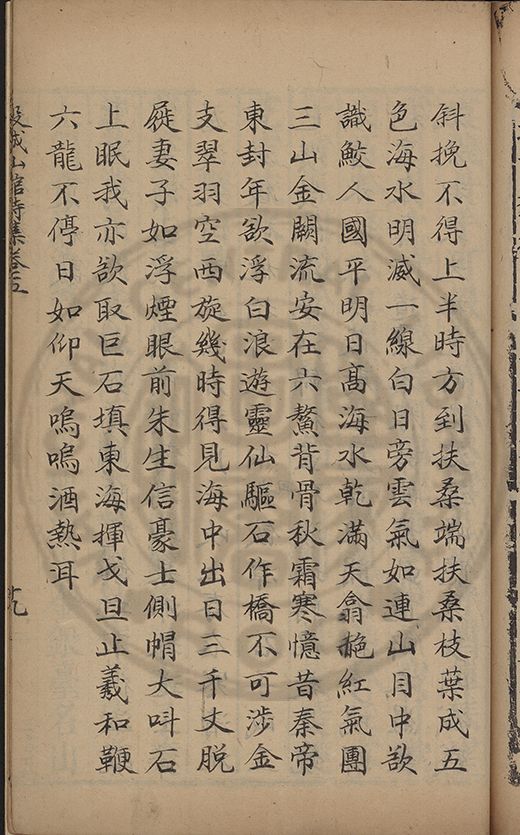 斜挽不得上半時方到扶桑端扶桑枝葉成五
色海水明滅一線白日旁雲氣如連山目中欻
識鮫人國平明日高海水乾滿天翕赩紅氣團
三山金闕流安在六鰲背骨秋霜寒憶昔秦帝
東封年欲浮白浪遊靈仙驅石作橋不可涉金
支翠羽空西旋幾時得見海中出日三千丈脫
屣妻子如浮煙眼前朱生信豪士側帽大呌石
上眠我亦欲取巨石填東海揮戈旦止羲和鞭
六龍不停日如仰天嗚嗚酒熱耳
山館詩集卷五
十九